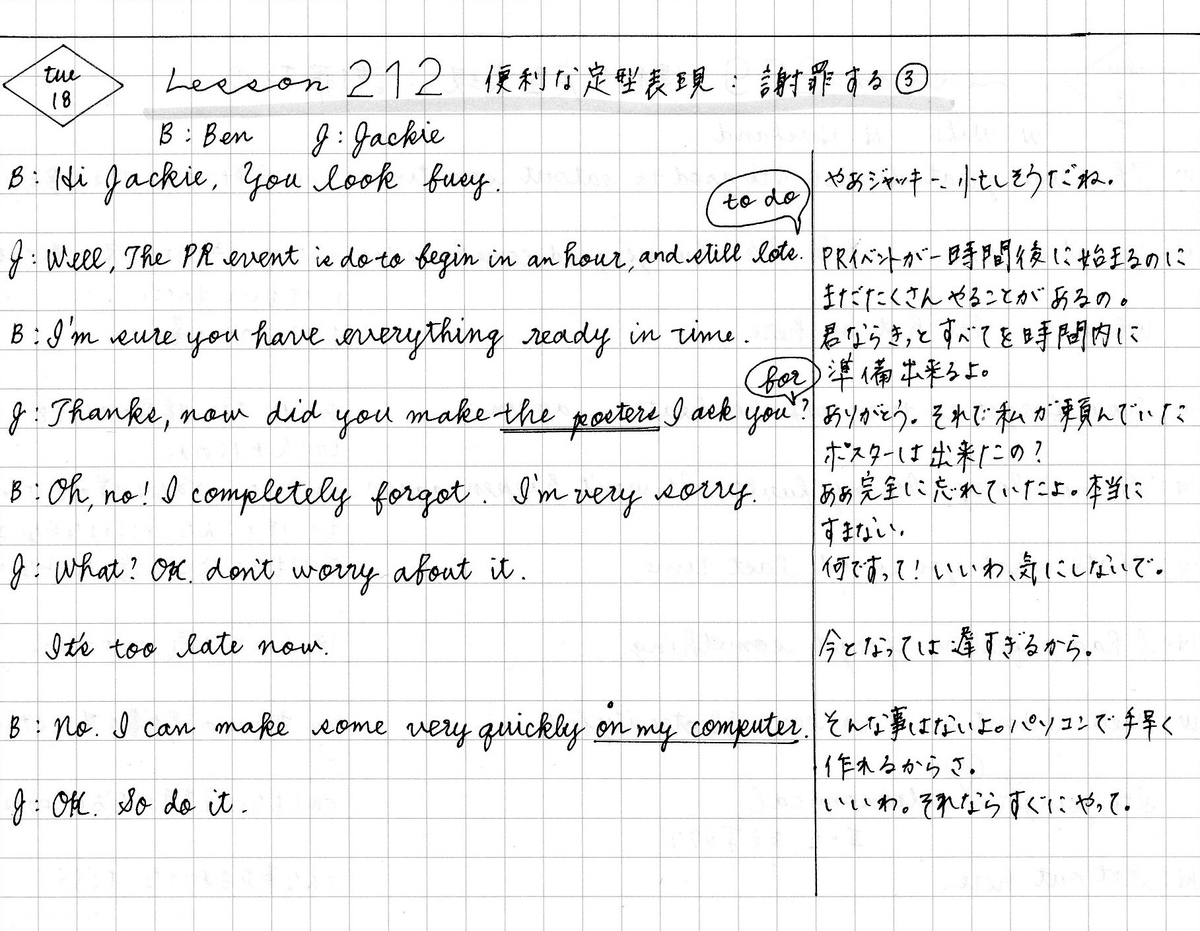 tue
18
Lesson 212 便利な定型表現：謝罪する③
B : Ben J : Jackie
B : Hi Jackie, You look busy.
やあジャッキー、忙しそうだね。
to do
J : Well, The PR event is do to begin in an hour, and still lots.
PRイベントが一時間後に始まるのに
まだたくさんやることがあるの。
B : I'm sure you have everything ready in time.
君ならきっとすべてを時間内に
準備出来るよ。
for
J : Thanks, now did you make the posters I ask you?
ありがとう。それで私が頼んでいた
ポスターは出来たの？
B : Oh, no! I completely forgot. I'm very sorry.
ああ完全に忘れていたよ。本当に
すまない。
J : What? OK. don't worry about it.
何ですって！いいわ、気にしないで。
It's too late now.
今となっては遅すぎるから。
B : No. I can make some very quickly on my computer.
そんな事はないよ。パソコンで手早く
作れるからさ。
J : OK. So do it.
いいわ。それならすぐにやって。